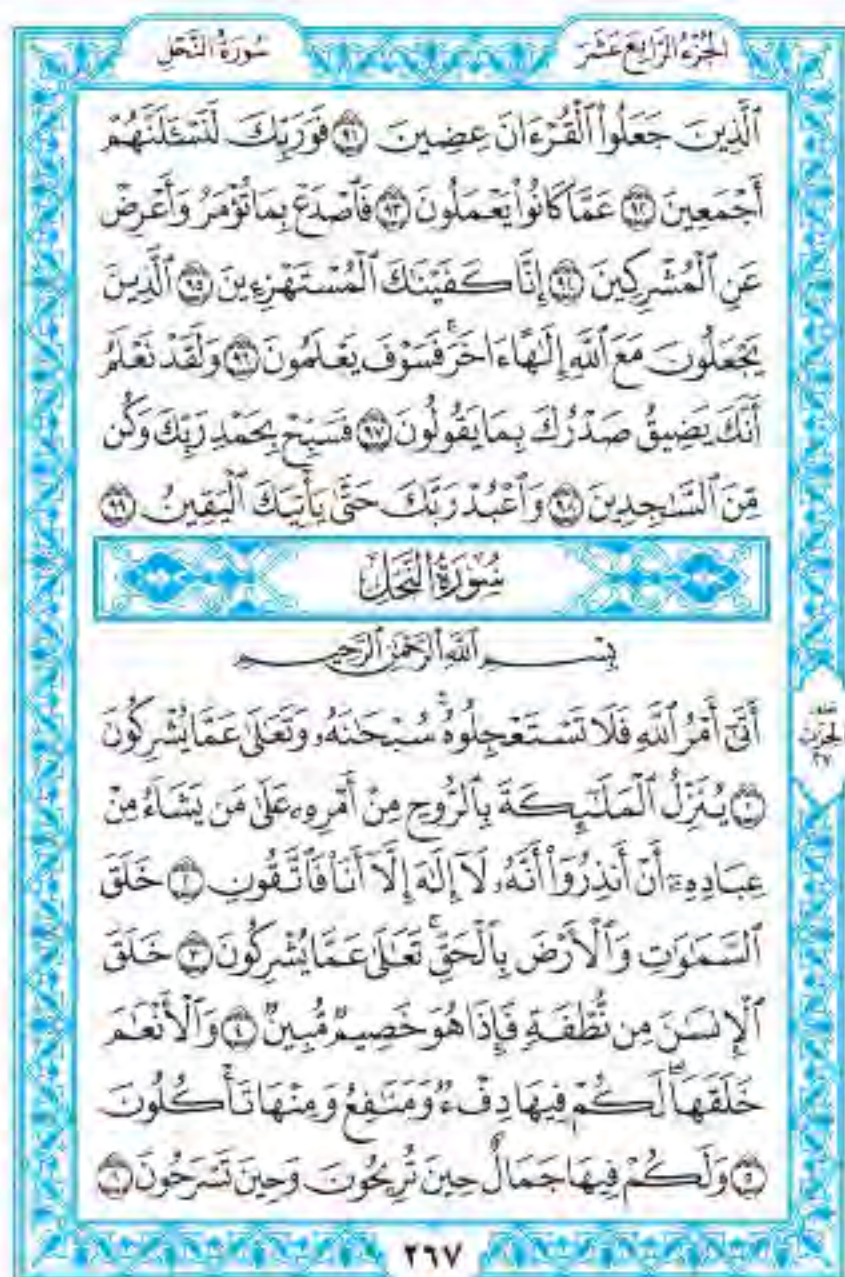 الجُزْءُ الرَّابِعَ عَشَرَ
سُورَةُ النَّحْلِ
ٱلَّذِينَ جَعَلُوا۟ ٱلْقُرْءَانَ عِضِينَ ٩١ فَوَرَبِّكَ لَنَسْـَٔلَنَّهُمْ
أَجْمَعِينَ ٩٢ عَمَّا كَانُوا۟ يَعْمَلُونَ ٩٣ فَٱصْدَعْ بِمَا تُؤْمَرُ وَأَعْرِضْ
عَنِ ٱلْمُشْرِكِينَ ٩٤ إِنَّا كَفَيْنَٰكَ ٱلْمُسْتَهْزِءِينَ ٩٥ ٱلَّذِينَ
يَجْعَلُونَ مَعَ ٱللَّهِ إِلَٰهًا ءَاخَرَ ۚ فَسَوْفَ يَعْلَمُونَ ٩٦ وَلَقَدْ نَعْلَمُ
أَنَّكَ يَضِيقُ صَدْرُكَ بِمَا يَقُولُونَ ٩٧ فَسَبِّحْ بِحَمْدِ رَبِّكَ وَكُن
مِّنَ ٱلسَّٰجِدِينَ ٩٨ وَٱعْبُدْ رَبَّكَ حَتَّىٰ يَأْتِيَكَ ٱلْيَقِينُ ٩٩
سُورَةُ النَّحْلِ
بِسْمِ ٱللَّهِ ٱلرَّحْمَٰنِ ٱلرَّحِيمِ
أَتَىٰٓ أَمْرُ ٱللَّهِ فَلَا تَسْتَعْجِلُوهُ ۚ سُبْحَٰنَهُۥ وَتَعَٰلَىٰ عَمَّا يُشْرِكُونَ
١ يُنَزِّلُ ٱلْمَلَٰٓئِكَةَ بِٱلرُّوحِ مِنْ أَمْرِهِۦ عَلَىٰ مَن يَشَآءُ مِنْ
عِبَادِهِۦٓ أَنْ أَنذِرُوٓا۟ أَنَّهُۥ لَآ إِلَٰهَ إِلَّآ أَنَا۠ فَٱتَّقُونِ ٢ خَلَقَ
ٱلسَّمَٰوَٰتِ وَٱلْأَرْضَ بِٱلْحَقِّ ۚ تَعَٰلَىٰ عَمَّا يُشْرِكُونَ ٣ خَلَقَ
ٱلْإِنسَٰنَ مِن نُّطْفَةٍ فَإِذَا هُوَ خَصِيمٌ مُّبِينٌ ٤ وَٱلْأَنْعَٰمَ
خَلَقَهَا ۗ لَكُمْ فِيهَا دِفْءٌ وَمَنَٰفِعُ وَمِنْهَا تَأْكُلُونَ
٥ وَلَكُمْ فِيهَا جَمَالٌ حِينَ تُرِيحُونَ وَحِينَ تَسْرَحُونَ ٦
الحِزْبِ
٢٧
٢٦٧